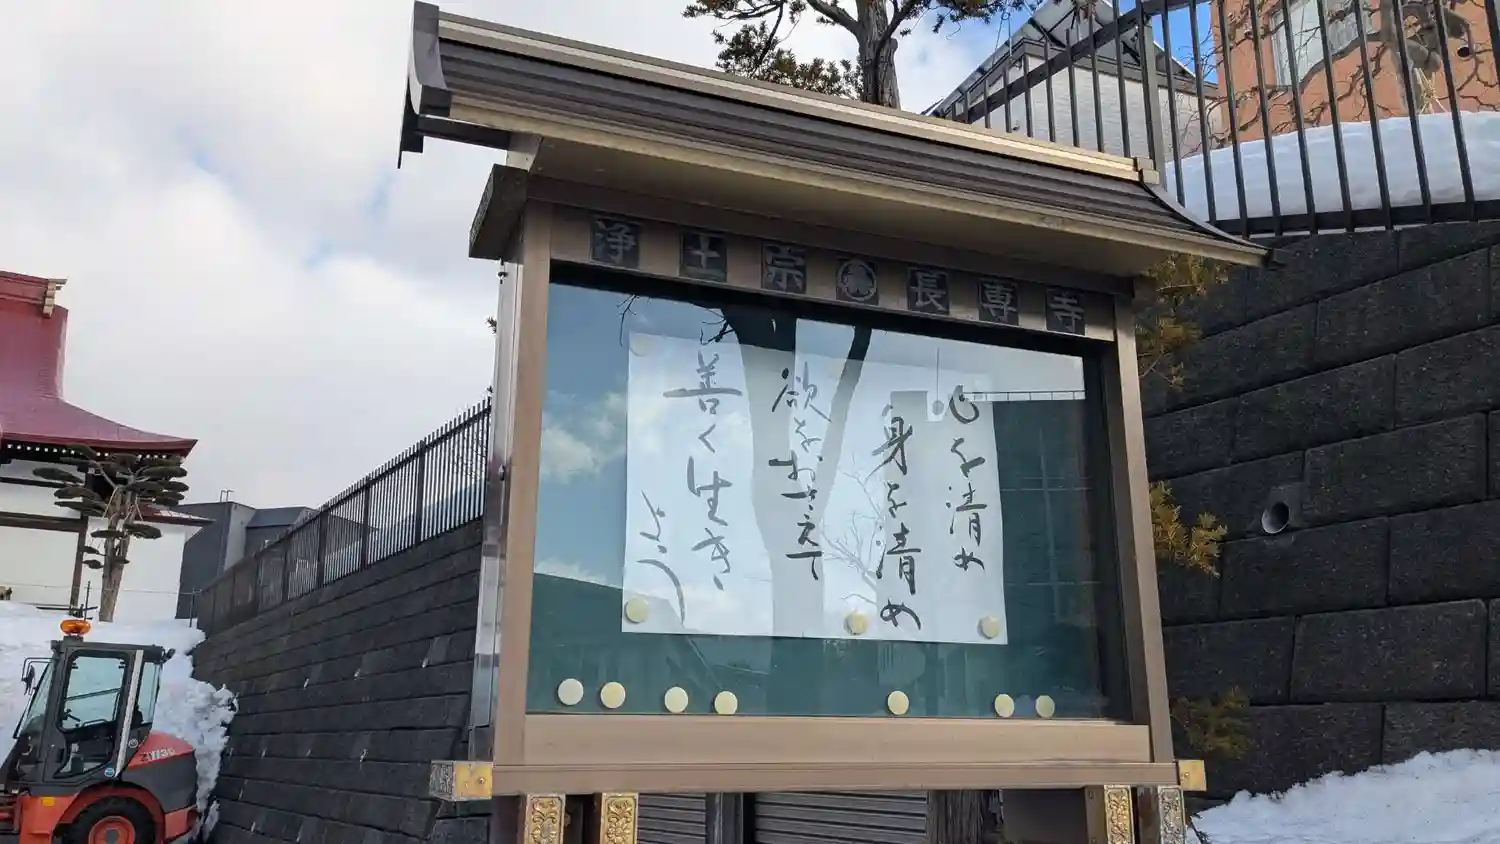 浄土宗 長専寺
心を清め
身を清め
欲をおさえて
善く生き
よう
ZV30